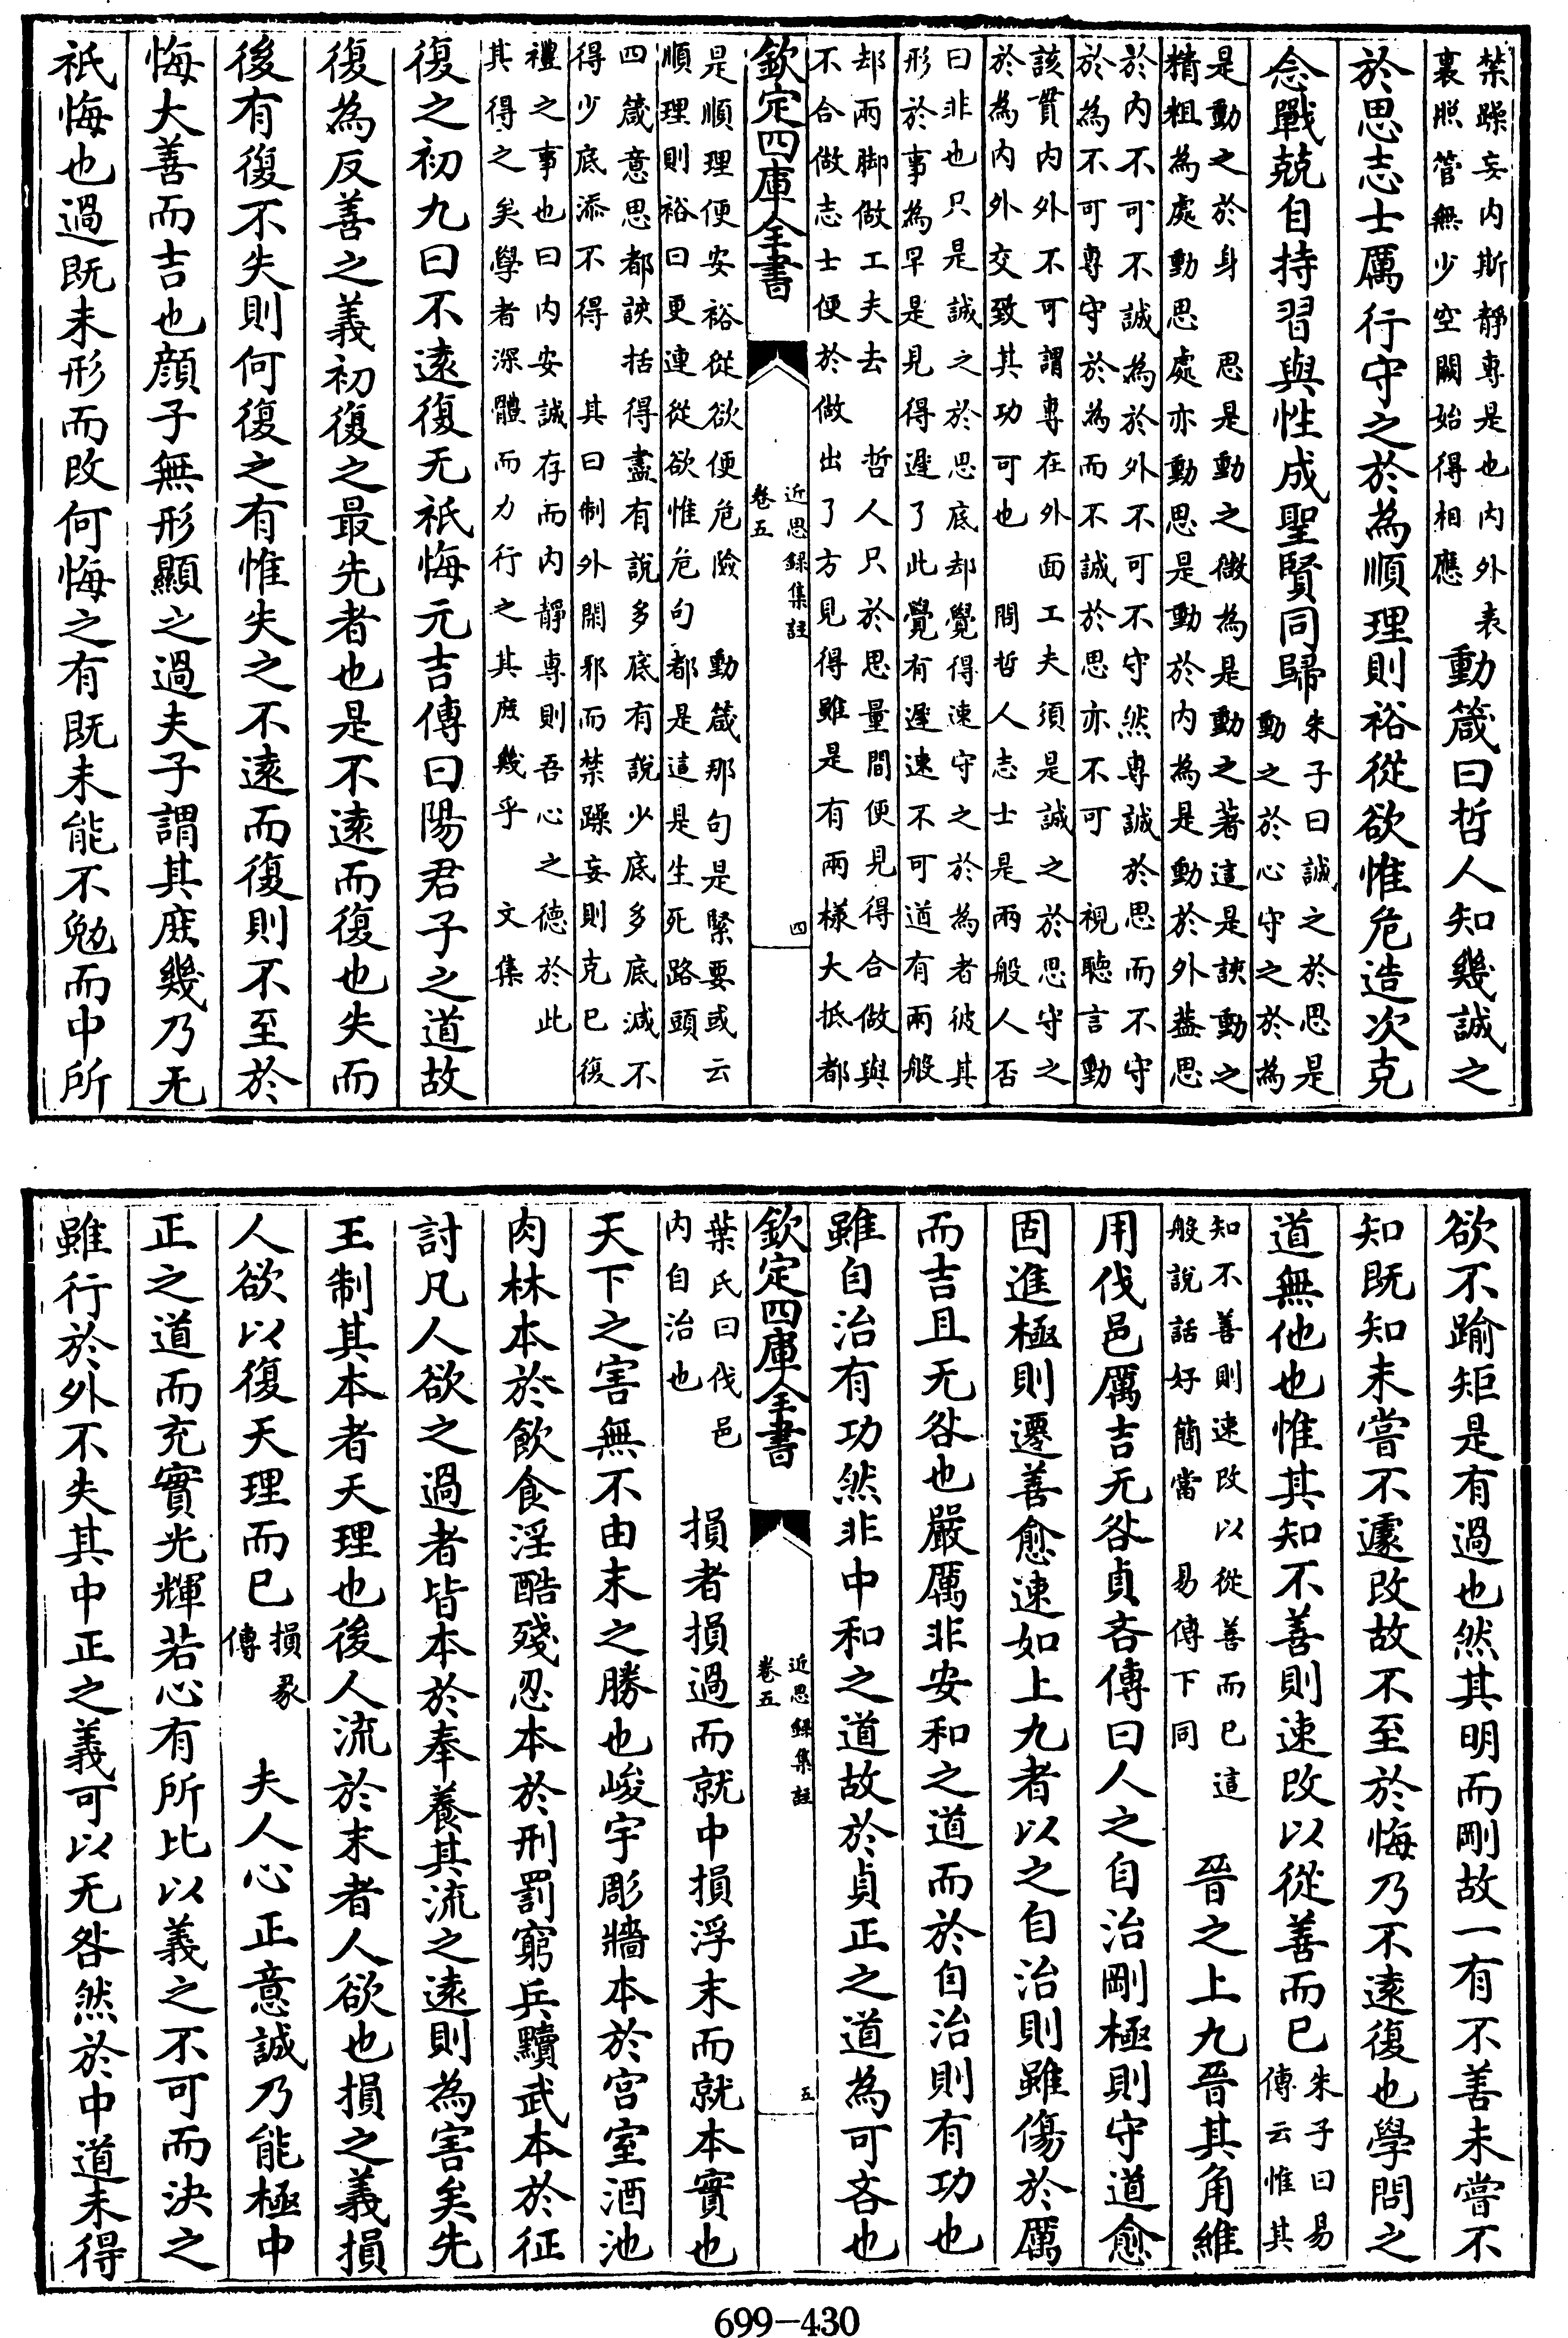 禁躁妄内斯靜專是也内外表
裏照管無少空闕始得相應
動箴曰哲人知幾誠之
於思志士厲行守之於為順理則裕從欲惟危造次克
念戰兢自持習與性成聖賢同歸
朱子曰誠之於思是
動之於心守之於為
是動之於身　思是動之微為是動之著這是該動之
精粗為處動思處亦動思是動於内為是動於外蓋思
於内不可不誠為於外不可不守然專誠於思而不守
於為不可專守於為而不誠於思亦不可　視聽言動
該貫内外不可謂專在外面工夫須是誠之於思守之
於為内外交致其功可也　問哲人志士是兩般人否
曰非也只是誠之於思底却覺得速守之於為者彼其
形於事為早是見得遲了此覺有遲速不可道有兩般
却兩脚做工夫去　哲人只於思量間便見得合做與
不合做志士便於做出了方見得雖是有兩樣大抵都
欽定四庫全書
近思録集註
卷五
四
是順理便安裕從欲便危險　動箴那句是緊要或云
順理則裕曰更連從欲惟危句都是這是生死路頭
四箴意思都該括得盡有說多底有說少底多底減不
得少底添不得　其曰制外閑邪而禁躁妄則克己復
禮之事也曰内安誠存而内靜專則吾心之德於此
其得之矣學者深體而力行之其庶幾乎　文集
復之初九曰不遠復无祇悔元吉傳曰陽君子之道故
復為反善之義初復之最先者也是不遠而復也失而
後有復不失則何復之有惟失之不遠而復則不至於
悔大善而吉也顔子無形顯之過夫子謂其庶幾乃无
祇悔也過既未形而改何悔之有既未能不勉而中所
欲不踰矩是有過也然其明而剛故一有不善未嘗不
知既知未嘗不遽改故不至於悔乃不遠復也學問之
道無他也惟其知不善則速改以從善而已
朱子曰易
傳云惟其
知不善則速改以從善而已這
般說話好簡當　易傳下同
晉之上九晉其角維
用伐邑厲吉无咎貞吝傳曰人之自治剛極則守道愈
固進極則遷善愈速如上九者以之自治則雖傷於厲
而吉且无咎也嚴厲非安和之道而於自治則有功也
雖自治有功然非中和之道故於貞正之道為可吝也
欽定四庫全書
近思録集註
卷五
五
葉氏曰伐邑
内自治也
損者損過而就中損浮末而就本實也
天下之害無不由末之勝也峻宇彫牆本於宫室酒池
肉林本於飲食淫酷殘忍本於刑罰窮兵黷武本於征
討凡人欲之過者皆本於奉養其流之遠則為害矣先
王制其本者天理也後人流於末者人欲也損之義損
人欲以復天理而已
損彖
傳
夫人心正意誠乃能極中
正之道而充實光輝若心有所比以義之不可而決之
雖行於外不失其中正之義可以无咎然於中道未得
699-430